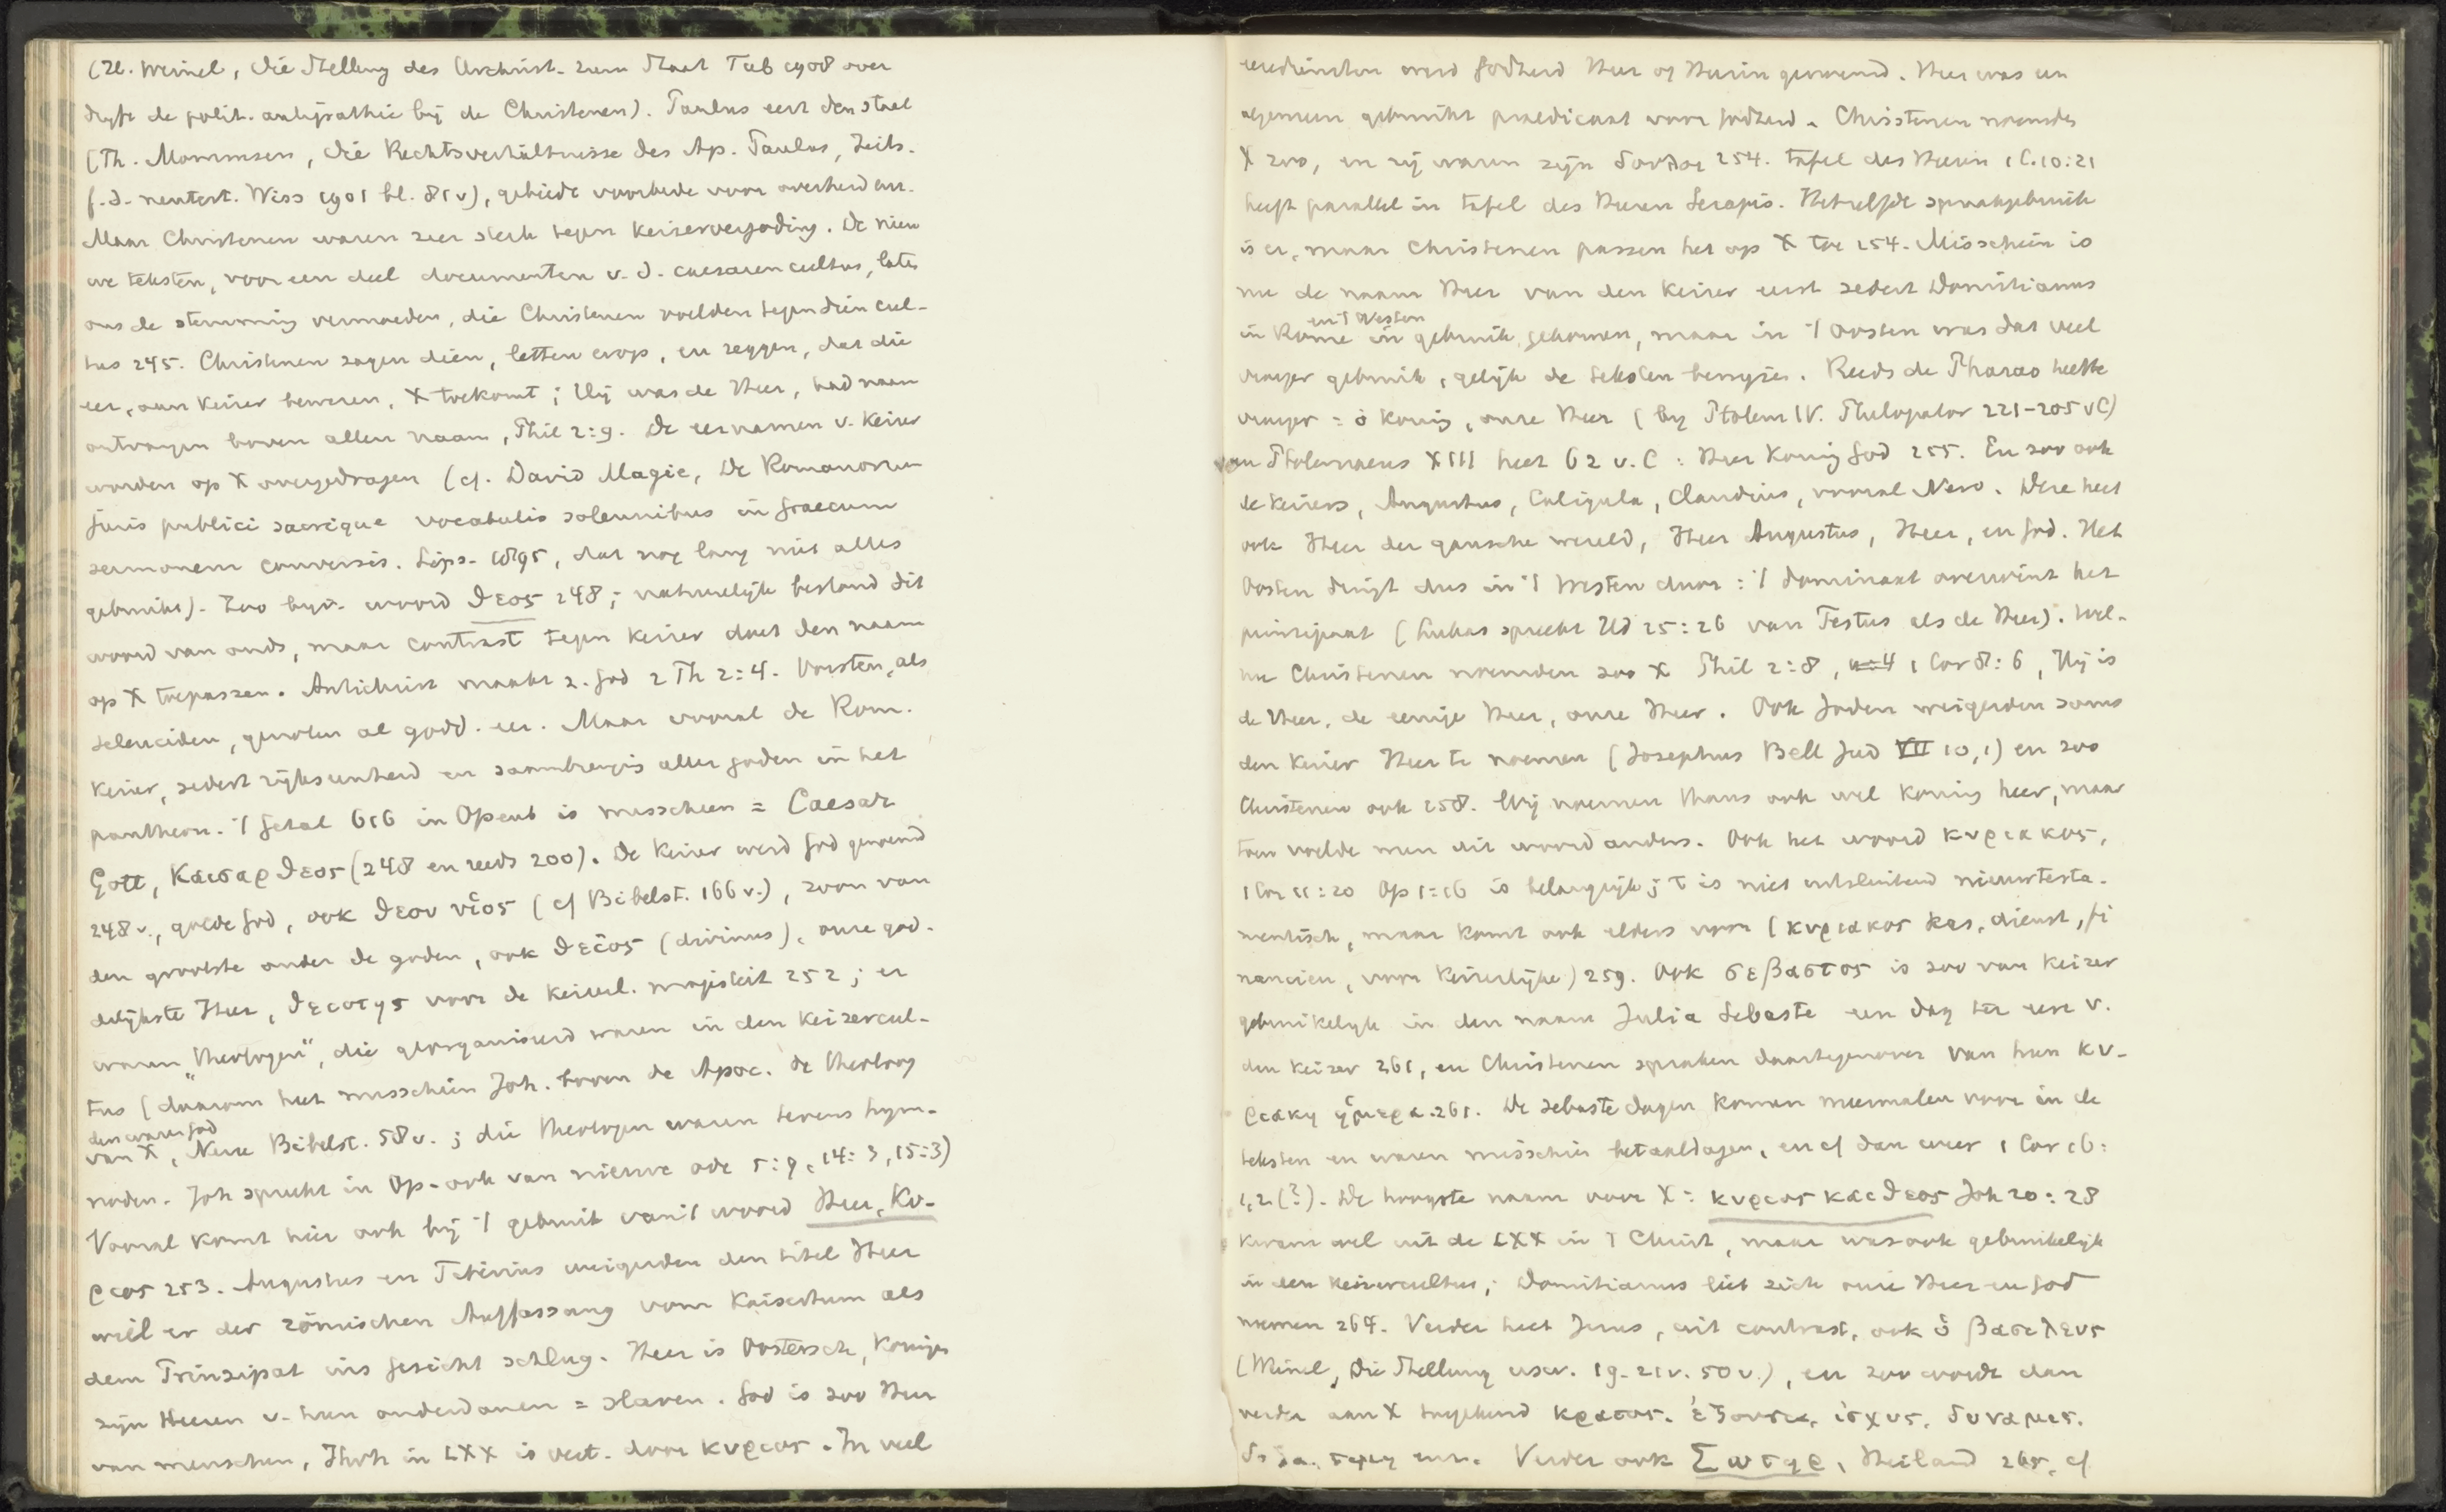 (H. Weinel, Die Stellung des Urchrist. zum Staat Tüb 1908 over
de polit. antipathie bij de Christenen). Paulus eert den staat
(Th. Mommsen, Die Rechtsverhältnisse des Ap. Paulus, Zeits.
f. d. neutest. Wiss 1901 bl. 81 v), gebiedt voorbede voor overheid enz.
Maar Christenen waren zeer sterk tegen keizervergoding. De nieu
we teksten, voor een deel documenten v. d. caesarencultus, laten
ons de stemming vermoeden, die Christenen voelden tegen dien cul-
tus 245. Christenen zagen dien, letten erop, en zeggen, dat die
eer, aan keizer bewezen, X toekomt; Hij was de Heer, had naam
ontvangen boven allen naam, Phil 2:9. De eernamen v. keizer
worden op X overgedragen (cf. David Magie, De Romanorum
juris publici sacrique vocabulis solemnibus in Graecum
sermonem conversis. Lips. 1895, dat nog lang niet alles
gebruikt). Zoo bijv. woord θεος 248; natuurlijk bestond dit
woord van ouds, maar contrast tegen keizer doet den naam
op X toepassen. Antichrist maakt z. God 2 Th 2:4. Vorsten, als
Seleuciden, genoten al godd. eer. Maar vooral de Rom.
keizer, sedert rijkseenheid en samenbrengig aller goden in het
pantheon. 't Getal 616 in Openb is misschien = Caesar
Gott, Καισαρ θεος (248 en reeds 200). De keizer werd God genoemd
248 v., goede God, ook θεου υἱος (cf Bibelst. 166 v.), zoon van
den grootste onder de goden, ook θεῖος (divinus), onze god-
delijkste Heer, θειοτης voor de keizerl. majesteit 252; er
waren „theologen", die georganiseerd waren in den keizercul-
tus (daarom heet misschien Joh. boven de Apoc. de theoloog
den waren God
van X, Neue Bibelst. 58 v.; die theologen waren tevens hym-
noden. Joh spreekt in Op. ook van nieuwe ode 5:9, 14:3, 15:3)
Vooral komt hier ook bij 't gebruik van 't woord Heer, Κυ-
ριος 253. Augustus en Tiberius weigerden den titel Heer
weil er der römischen Auffassung vom Kaisertum als
dem Prinzipat ins Gesicht schlug. Heer is Oostersch, Koningen
zijn Heeren v. hun onderdanen = slaven. God is zoo Heer
van menschen, Jhvh in LXX is vert. door κυριος. In veel
eerediensten werd Godheid Heer of Heerin genoemd. Heer was een
algemeen gebruikt praedicaat voor Godheid. Christenen noemden
X zoo, en zij waren zijn δουλοι 254. Tafel des Heeren 1 C. 10:21
heeft parallel in tafel des Heeren Serapis. Hetzelfde spraakgebruik
is er, maar Christenen passen het op X toe 254. Misschien is
nu de naam Heer van den keizer eerst sedert Domitianus
en 't Westen
in Rome in gebruik gekomen, maar in 't Oosten was dat veel
vroeger gebruik, gelijk de teksten bewijzen. Reeds de Pharao heette
vroeger = ὁ Koning, onze Heer (bij Ptolem IV. Philopator 221-205 vC)
van Ptolemaeus XIII heet 62 v. C: Heer Koning God 255. En zoo ook
de keizers, Augustus, Caligula, Claudius, vooral Nero. Deze heet
ook Heer der gansche wereld, Heer Augustus, Heer, en God. Het
Oosten dringt dus in 't Westen door: 't dominaat overwint het
principaat (Lukas spreekt Hd 25:26 van Festus als de Heer). Wel-
nu Christenen noemden zoo X Phil 2:8, 1 Cor 8:6, Hij is
de Heer, de eenige Heer, onze Heer. Ook Joden weigerden soms
den keizer Heer te noemen (Josephus Bell Jud VII 10,1) en zoo
Christenen ook 258. Wij noemen thans ook wel koning heer, maar
toen voelde men dit woord anders. Ook het woord κυριακος,
1 Cor 11:20 Op 1:10 is belangrijk; 't is niet uitsluitend nieuwtesta-
mentisch, maar komt ook elders voor (κυριακος kas, dienst, fi
nancien, voor keizerlijke) 259. Ook σεβαστος is zoo van keizer
gebruikelijk in den naam Julia Sebaste een dag ter eere v.
den keizer 261, en Christenen spraken daartegenover van hun κυ-
ριακη ἡμερα. 261. De sebaste dagen komen meermalen voor in de
teksten en waren misschien betaaldagen, en cf dan weer 1 Cor 16:
1,2 (?). De hoogste naam voor X: κυριος και θεος Joh 20:28
kwam wel uit de LXX in 't Christ, maar was ook gebruikelijk
in den keizercultus; Domitianus liet zich onze Heer en God
noemen 264. Verder heet Jezus, uit contrast, ook ὁ βασιλευς
(Weinel, Die Stellung usw. 19. 21 v. 50 v.), en zoo wordt dan
verder aan X toegekend κρατος, ἐξουσια, ἰσχυς, δυναμις,
δοξα, τιμη enz. Verder ook Σωτηρ, Heiland 265, cf